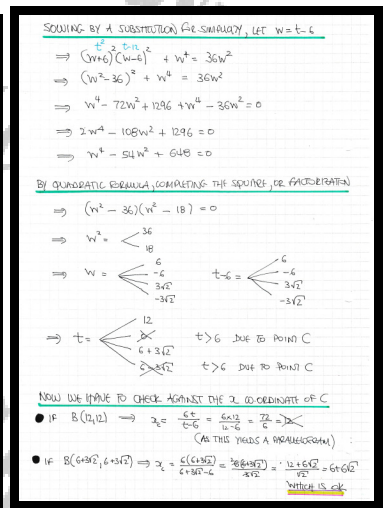 SOLVING BY A SUBSTITUTION FOR SIMPLICITY, LET w = t-6
t² t-12
⇒ (w+6)²(w-6)² + w⁴ = 36w²
⇒ (w²-36)² + w⁴ = 36w²
⇒ w⁴ - 72w² + 1296 + w⁴ - 36w² = 0
⇒ 2w⁴ - 108w² + 1296 = 0
⇒ w⁴ - 54w² + 648 = 0
BY QUADRATIC FORMULA, COMPLETING THE SQUARE, OR FACTORIZATION
⇒ (w² - 36)(w² - 18) = 0
⇒ w² = < 36
18
⇒ w = < 6
-6
3√2
-3√2
t-6 = < 6
-6
3√2
-3√2
⇒ t = < 12
0 t>6 DUE TO POINT C
6+3√2
6-3√2 t>6 DUE TO POINT C
NOW WE HAVE TO CHECK AGAINST THE x CO-ORDINATE OF C
● IF B(12,12) ⇒ x_c = 6t/(t-6) = (6×12)/(12-6) = 72/6 = 12
(AS THIS YIELDS A PARALLELOGRAM)
● IF B(6+3√2, 6+3√2) ⇒ x_c = 6(6+3√2)/(6+3√2-6) = 6(6+3√2)/(3√2) = (12+6√2)/√2 = 6+6√2
WHICH IS OK